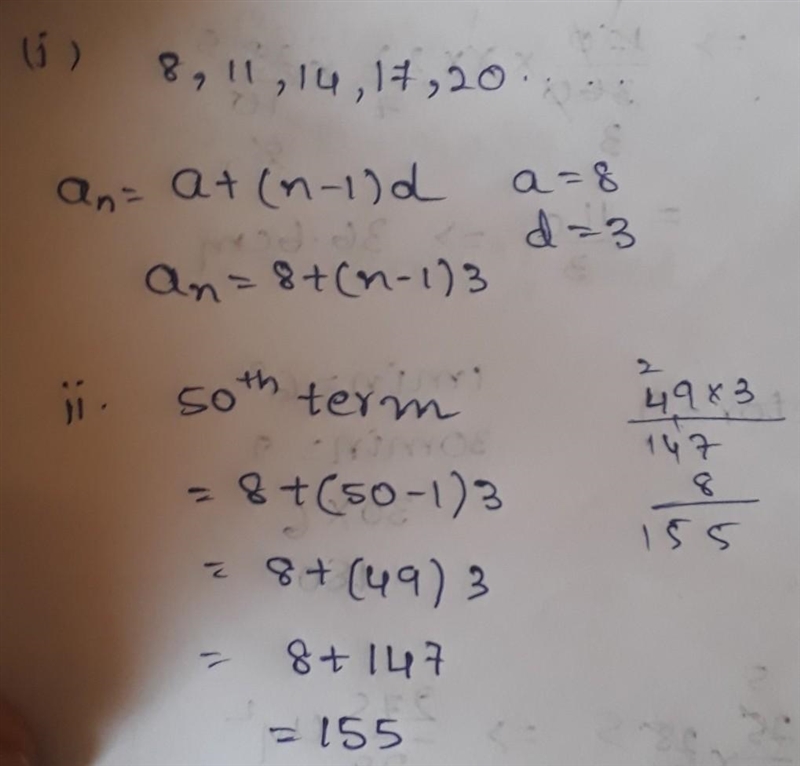 (i) 8, 11, 14, 17, 20.....
an = a + (n-1)d a = 8
d = 3
an = 8 + (n-1)3
ii. 50th term
= 8 + (50-1)3
= 8 + (49)3
= 8 + 147
= 155
2
49 x 3
1
147
8
155